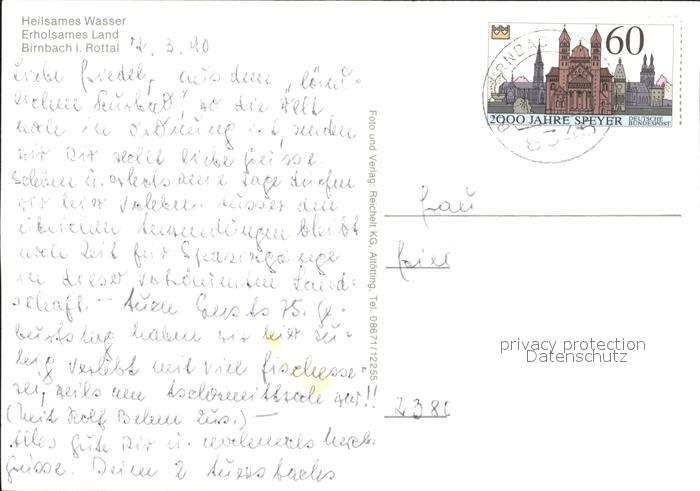 Heilsames Wasser
Erholsames Land
Birnbach i. Rottal
7. 3. 90
Liebe Friedel, aus dem „länd-
lichen Kurbad", wo die Welt
noch in Ordnung ist, senden
wir Dir recht liebe Grüsse.
Schöne u. erholsame Tage dürfen
wir hier verleben. Ausser den
üblichen Anwendungen bleibt
noch Zeit für Spaziergänge
in dieser verträumten Land-
schaft. – Auch Gusts 75. Ge-
burtstag haben wir hier ru-
hig verlebt mit viel Fischesse-
rei, weils am Aschermittwoch war!!
(Mit Rolf Behm zus.) –
Alles Gute Dir u. nochmals herzl.
Grüsse. Deine 2 Auersbachs
Foto und Verlag: Reichelt KG, Altötting, Tel. 08671/12255
60
2000 JAHRE SPEYER
DEUTSCHE
BUNDESPOST
Frau
Friel
238
privacy protection
Datenschutz